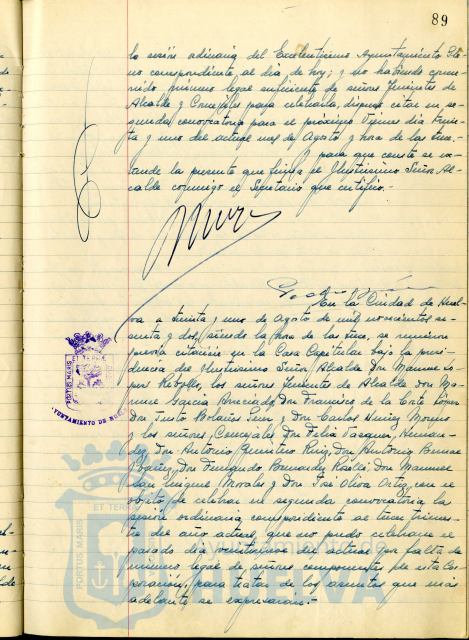 89
la sesión ordinaria del Excelentísimo Ayuntamiento Ple-
no correspondiente al día de hoy; y no habiendo concu-
rrido número legal suficiente de señores Tenientes de
Alcalde y Concejales para celebrarla, dispuso citar en se-
gunda convocatoria para el próximo Viernes día trein-
ta y uno del actual mes de Agosto y hora de las
Y para que conste se ex-
tiende la presente que firma el Ilustrísimo Señor Al-
calde conmigo el Secretario que certifico.-
En la Ciudad de Huel-
va a treinta y uno de Agosto de mil novecientos se-
senta y dos, siendo la hora de las se reunieron
previa citación en la Casa Capitular bajo la presi-
dencia del Ilustrísimo Señor Alcalde Don Manuel Ló-
pez Rebollo, los señores Tenientes de Alcalde don Ma-
nuel García Don Francisco de la Corte López
Don Justo Bolaños y Don Carlos Núñez Moreno
y los señores Concejales Don Félix Vázquez Hernán-
dez, Don Antonio Ruiz, Don Antonio
Ibáñez, Don Fernando Don Manuel
Enrique Morales y Don José Oliva Ortiz, con el
objeto de celebrar en segunda convocatoria la
sesión ordinaria correspondiente al tercer trimes-
tre del año actual que no pudo celebrarse el
pasado día veintinueve del actual por falta de
número legal de señores componentes de esta Cor-
poración, para tratar de los asuntos que más
adelante se expresarán.-
PORTUS MARIS
ET TERRE
AYUNTAMIENTO DE HUELVA
ET TERRÆ
PORTUS MARIS
HUELVA